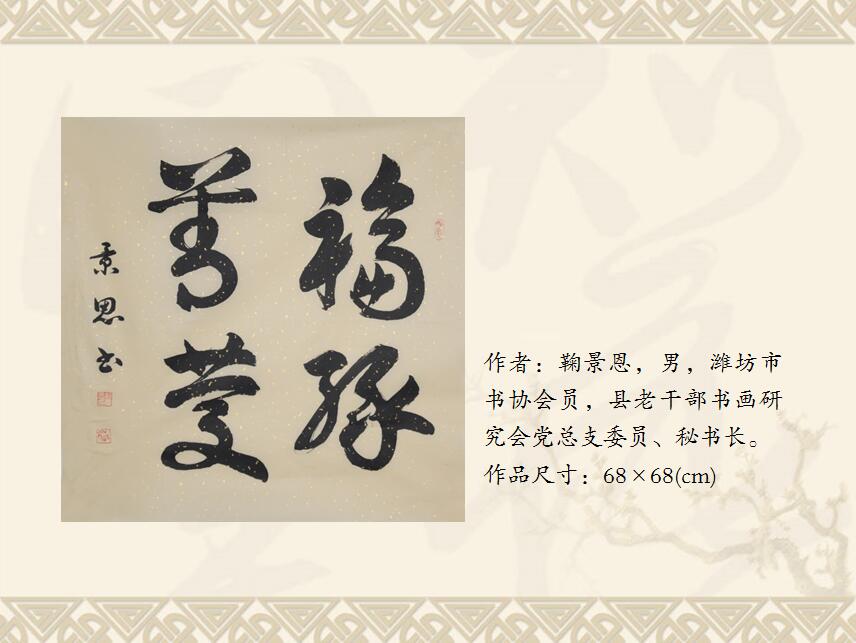 福緣
善慶
景恩书
作者：鞠景恩，男，潍坊市
书协会员，县老干部书画研
究会党总支委员、秘书长。
作品尺寸：68×68(cm)